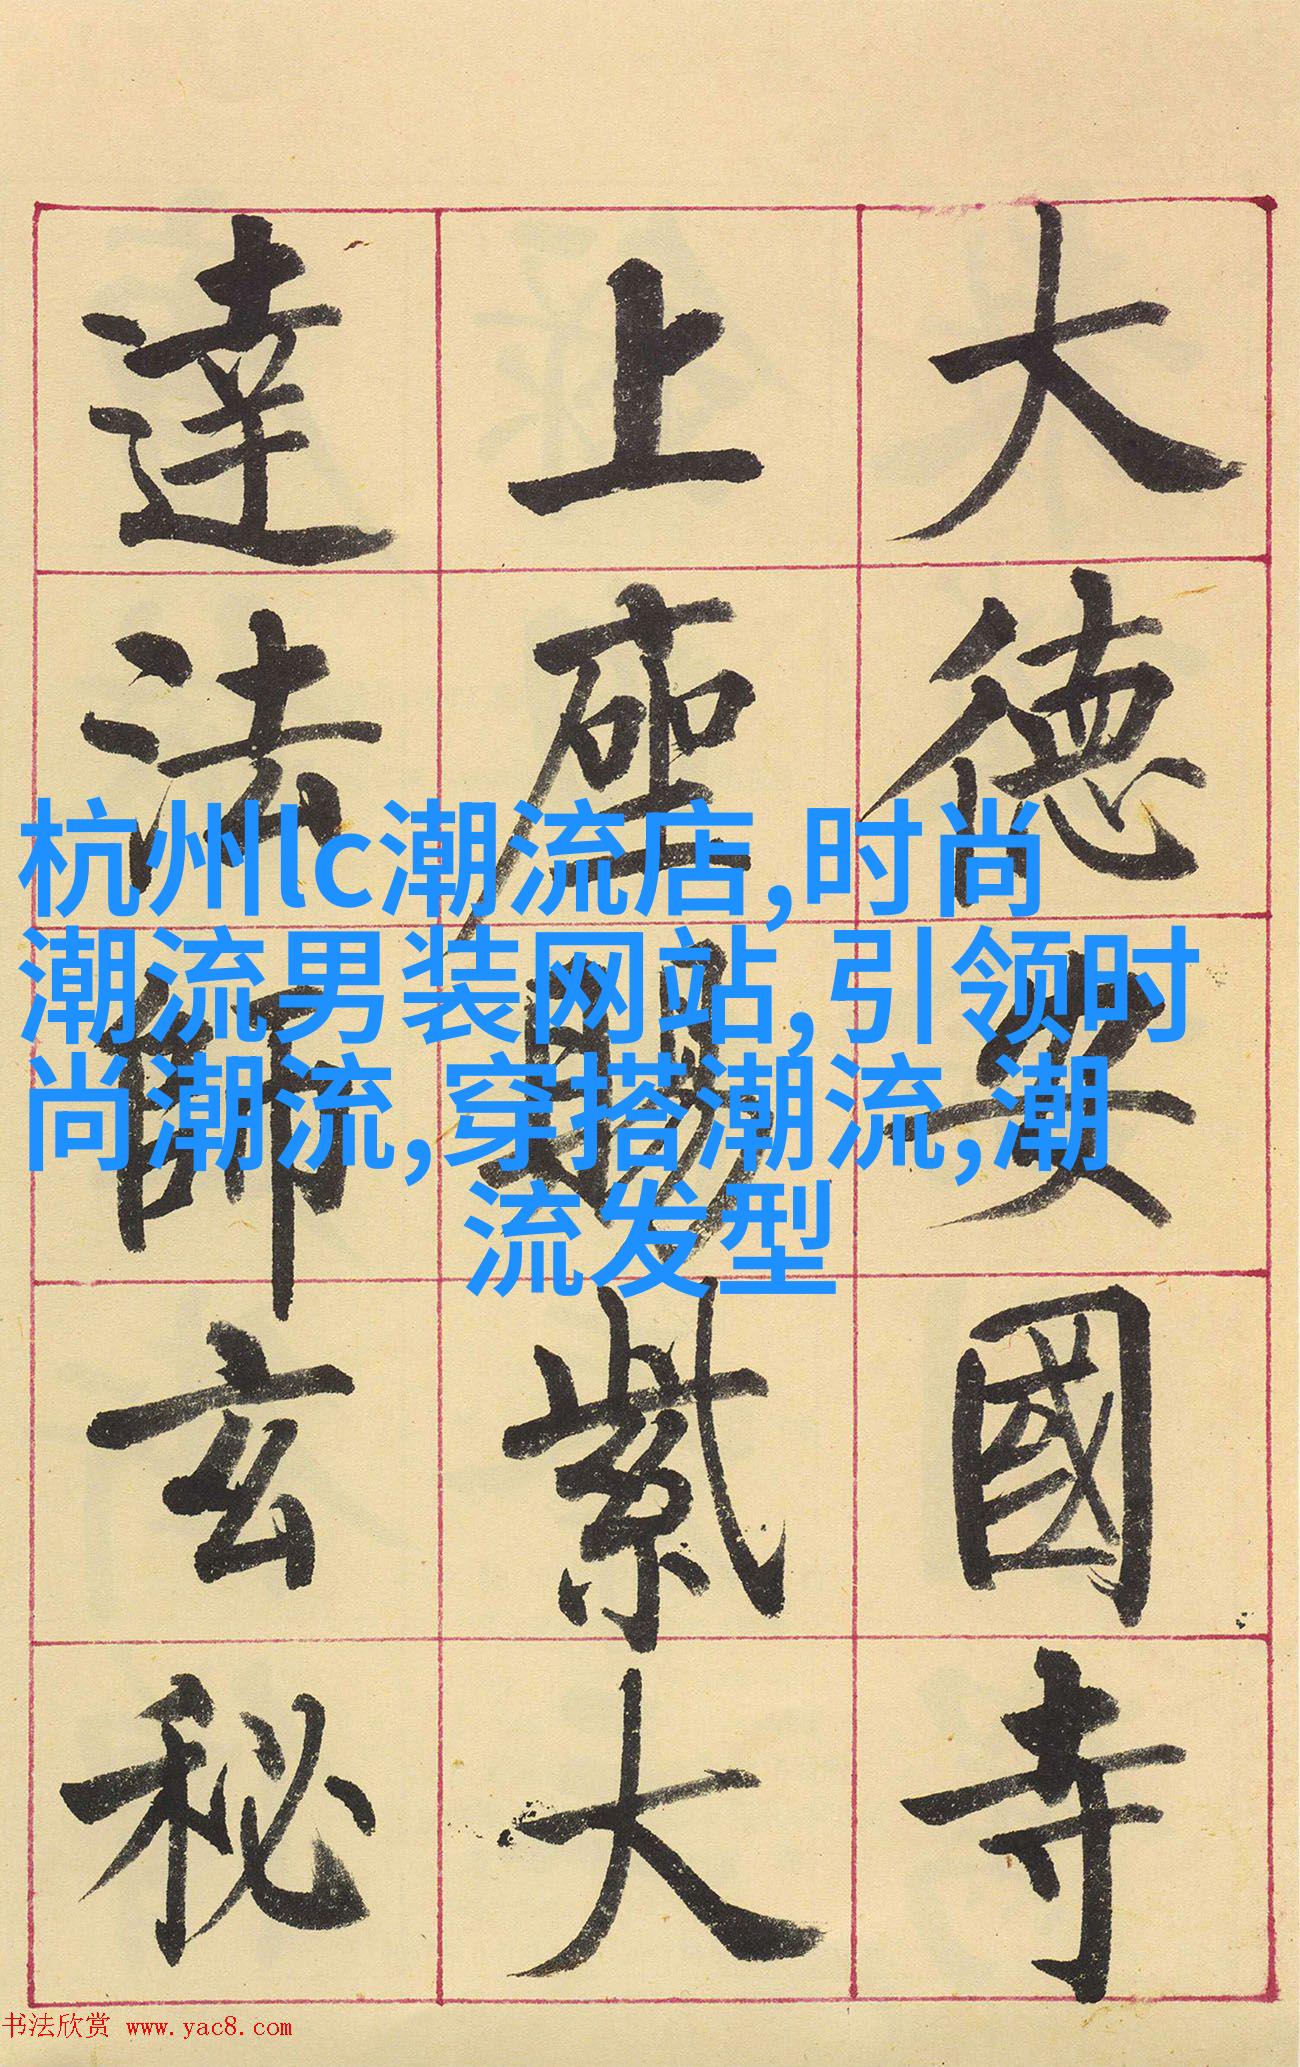 大德安國寺
上座賜紫大
達法師玄秘
杭州lc潮流店,时尚
潮流男装网站,引领时
尚潮流,穿搭潮流,潮
流发型
书法欣赏 www.yac8.com